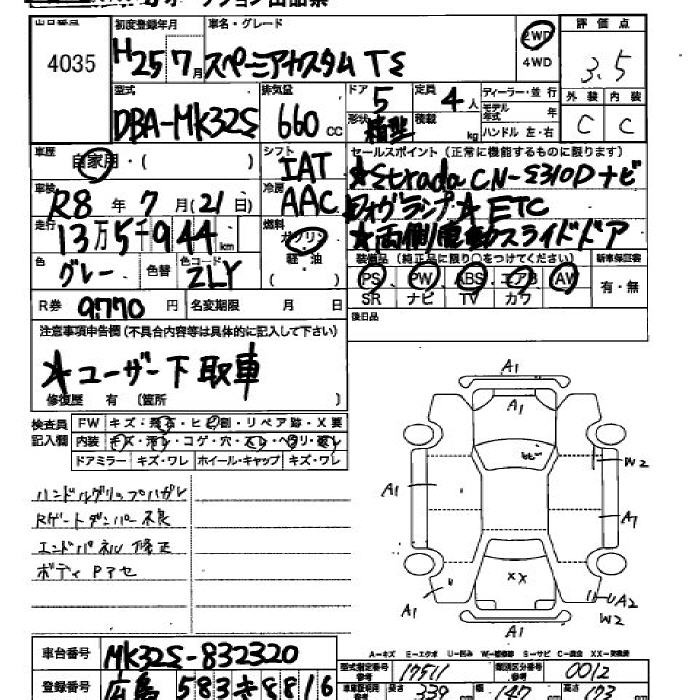 出品番号 初度登録年月 車名・グレード 評価点
4035 H25 7月 スペーシアカスタム TS 2WD 4WD 3.5
型式 排気量 ドア 定員 ディーラー・並行 外装 内装
DBA-MK32S 660 cc 5 4人 モデル年式 年 C C
形状 積載 kg ハンドル 左・右
車歴 自家用・( ) シフト IAT セールスポイント(正常に機能するものに限ります)
★Strada CN-S310D ナビ
車検 R8年 7月(21日) 冷房 AAC フォグランプ★ETC
走行 13万5千944km 燃料 ガソリン 軽・油 ( ) ★両側電動スライドドア
色 グレー 色替 色コード ZLY 装備品(純正品に限り○をつけてください) 新車保証書
PS PW ABS エアB AW 有・無
SR ナビ TV カワ
R券 9770円 名変期限 月 日 後日品
注意事項申告欄(不具合内容等は具体的に記入して下さい)
★ユーザー下取車
修復歴 有 〔箇所 〕
検査員記入欄 FW キズ・飛石・ヒビ割・リペア跡・X要
内装 キズ・汚レ・コゲ・穴・スレ・ヘタリ・破レ
ドアミラー キズ・ワレ ホイール・キャップ キズ・ワレ
ハンドルグリップハガレ
Rゲートダンパー不良
エンドパネル修正
ボディPアセ
A1
A1
ヒビ
A1
W2
A1
XX
A1
U
UA2
W2
交換済
A-キズ E-エクボ U-凹み W-補修跡 S-サビ C-腐食 XX-交換済
車台番号 MK32S-832320 型式指定番号 17511 類別区分番号 0012
登録番号 広島 583 き 8816 長さ 339 cm 幅 147 cm 高さ 173 cm